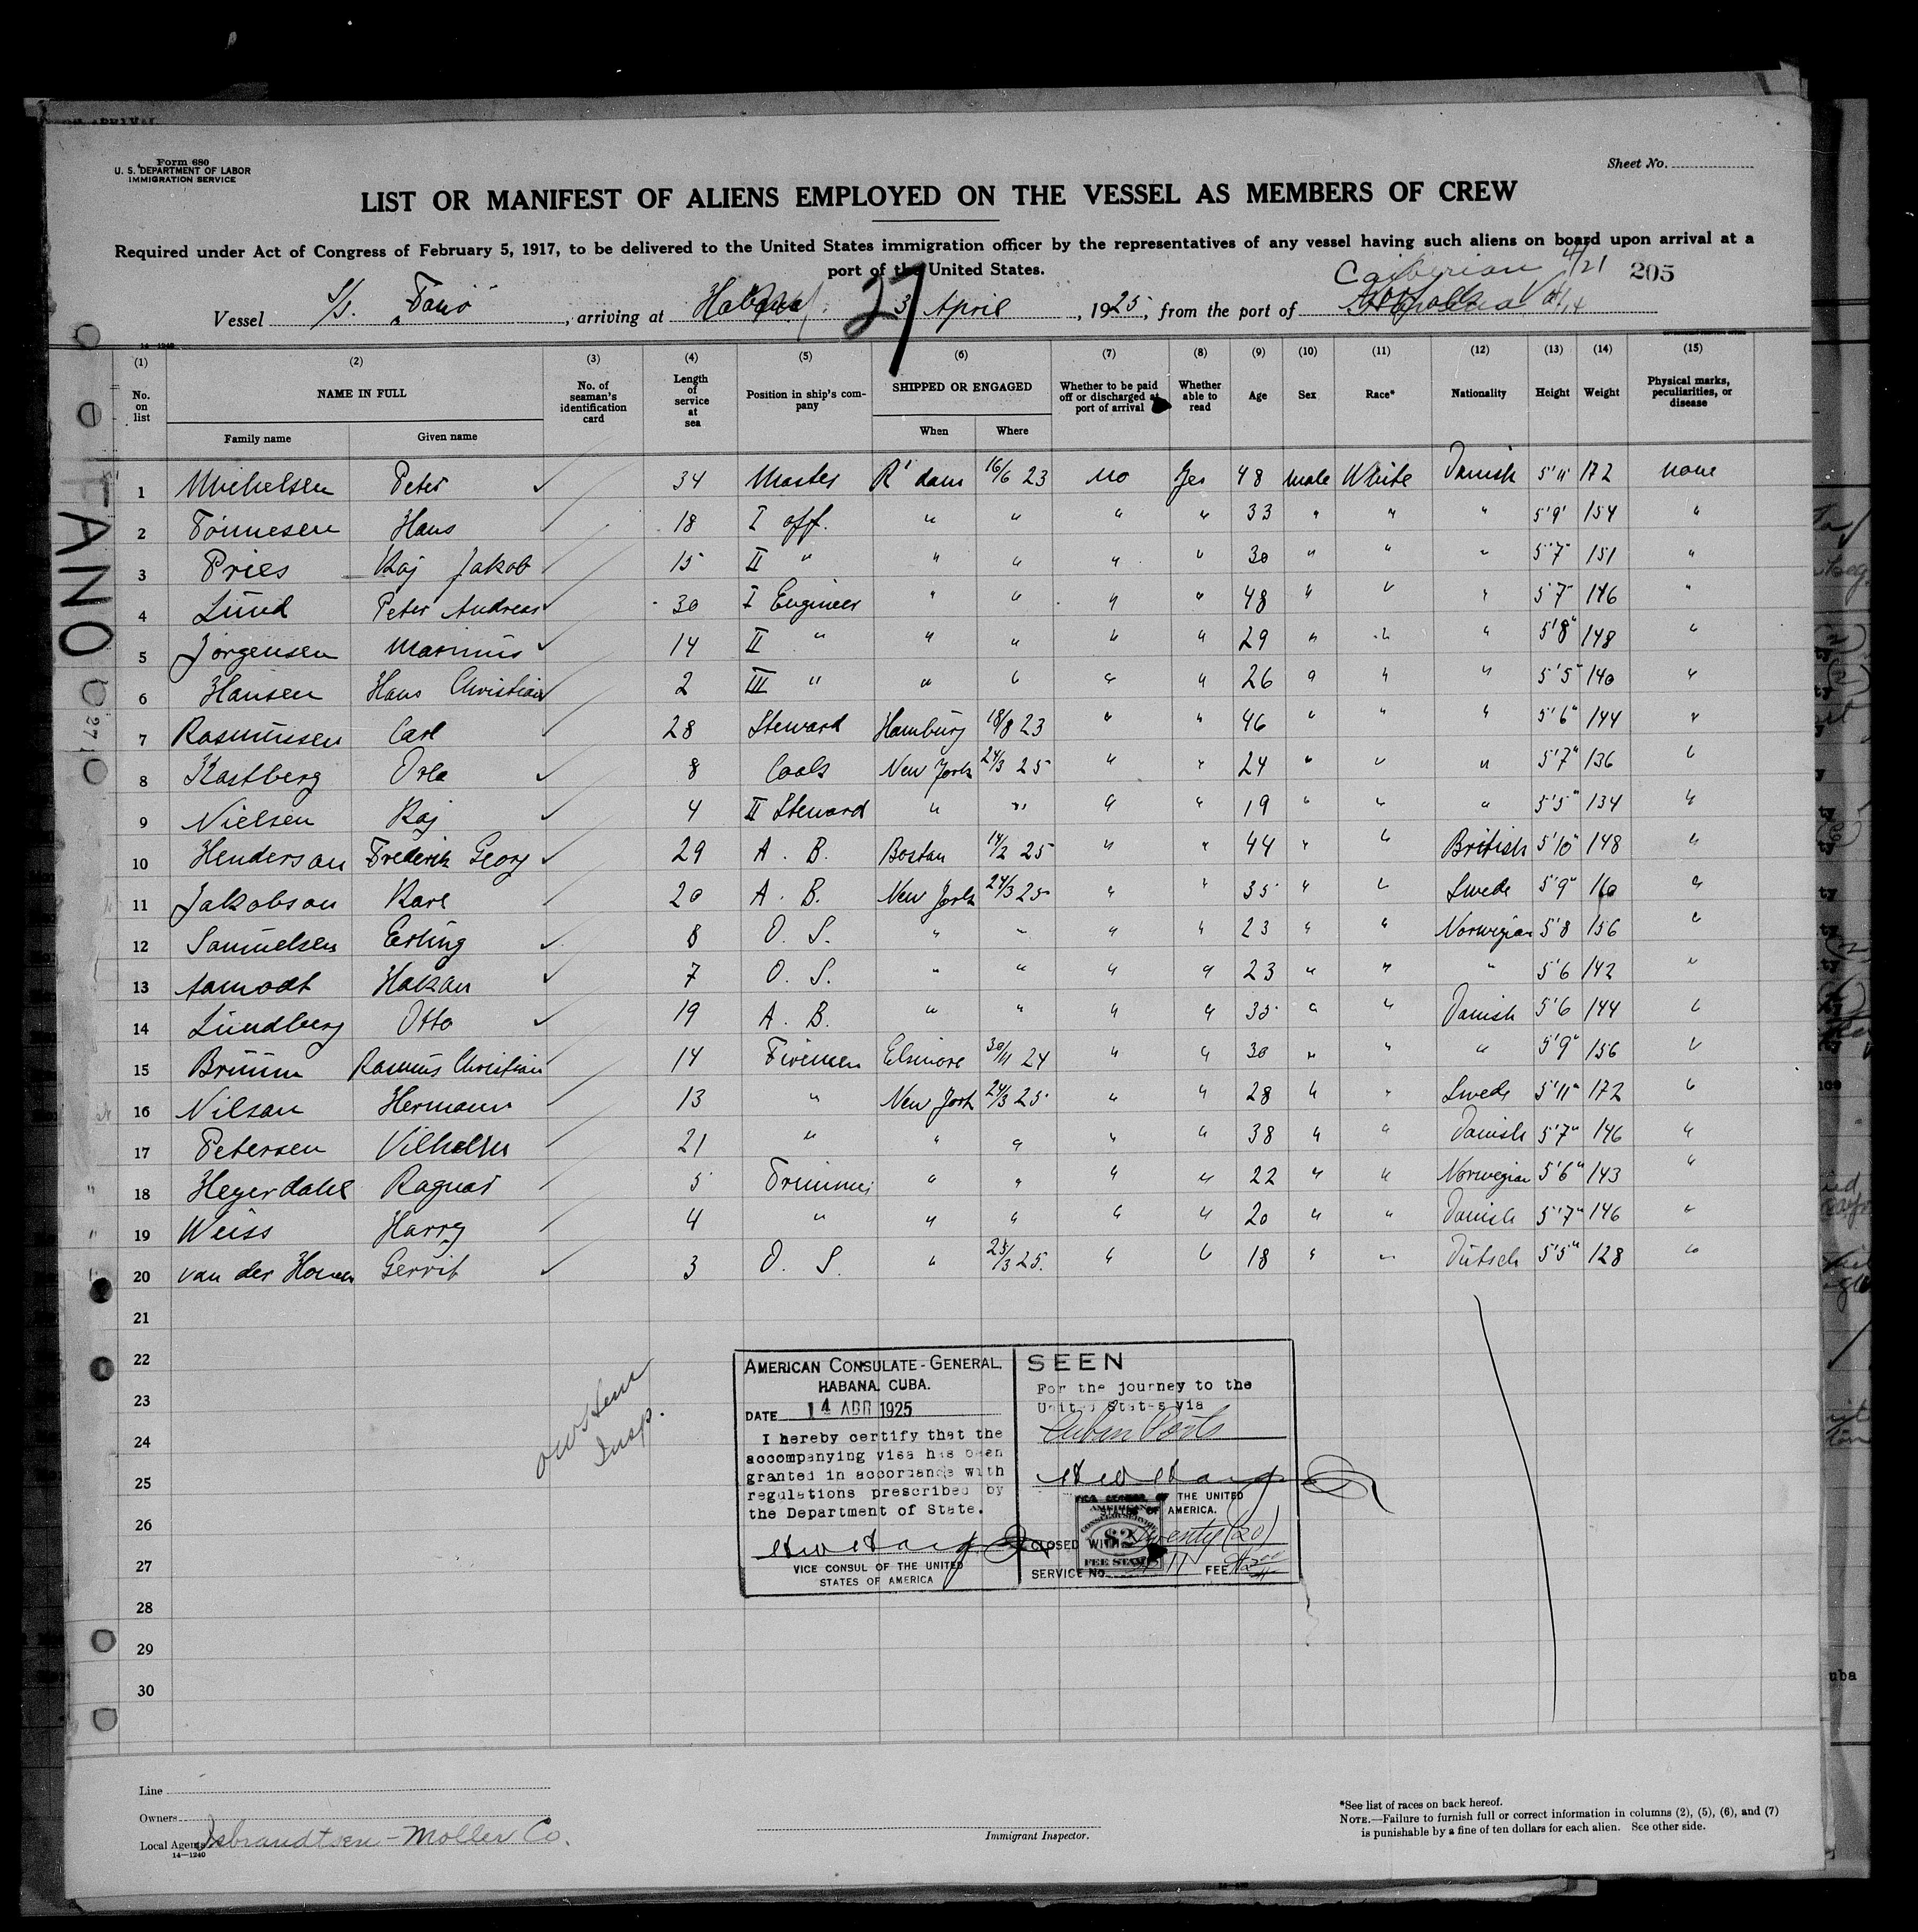 Form 680
U. S. DEPARTMENT OF LABOR
IMMIGRATION SERVICE
Sheet No.
LIST OR MANIFEST OF ALIENS EMPLOYED ON THE VESSEL AS MEMBERS OF CREW
Required under Act of Congress of February 5, 1917, to be delivered to the United States immigration officer by the representatives of any vessel having such aliens on board upon arrival at a
port of the United States.
Caibarien 4/21 205
Vessel S/S. Fanö, arriving at 27 3 April, 1925, from the port of
14—1240
(1) (2) (3) (4) (5) (6) (7) (8) (9) (10) (11) (12) (13) (14) (15)
No. on list NAME IN FULL No. of seaman's identification card Length of service at sea Position in ship's company SHIPPED OR ENGAGED Whether to be paid off or discharged at port of arrival Whether able to read Age Sex Race* Nationality Height Weight Physical marks, peculiarities, or disease
Family name Given name When Where
1 Michelsen Peter ✓ 34 Master R'dam 16/6 23 no Yes 48 male White Danish 5'11" 172 none
2 Tönnesen Hans 18 I off. " " " " 33 " " " 5'9" 154 "
3 Pries Kaj Jakob 15 II " " " " " 30 " " " 5'7" 151 "
4 Lund Peter Andreas ✓ 30 I Engineer " " " " 48 " " " 5'7" 146 "
5 Jörgensen Marinus ✓ 14 II " " " " " 29 " " " 5'8" 148 "
6 Hansen Hans Christian ✓ 2 III " " " " " 26 " " " 5'5" 140 "
7 Rasmussen Carl 28 Steward Hamburg 18/8 23 " " 46 " " " 5'6" 144 "
8 Kastberg Orla ✓ 8 Cook New York 24/3 25 " " 24 " " " 5'7" 136 "
9 Nielsen Kaj ✓ 4 II Steward " " " " 19 " " " 5'5" 134 "
10 Henderson Frederik Georg ✓ 29 A. B. Boston 14/2 25 " " 44 " " British 5'10" 148 "
11 Jakobson Karl ✓ 20 A. B. New York 24/3 25 " " 35 " " Swede 5'9" 160 "
12 Samuelsen Erling ✓ 8 O. S. " " " " 23 " " Norwegian 5'8 156 "
13 Aamodt Hakan ✓ 7 O. S. " " " " 23 " " " 5'6 142 "
14 Lundberg Otto ✓ 19 A. B. " " " " 35 " " Danish 5'6 144 "
15 Bruun Rasmus Christian 14 Firemen Elsinore 30/11 24 " " 30 " " " 5'9" 156 "
16 Nilson Hermann 13 " New York 24/3 25 " " 28 " " Swede 5'11" 172 "
17 Petersen Vilhelm 21 " " " " " 38 " " Danish 5'7" 146 "
18 Heyerdahl Ragnar 5 Trimmer " " " " 22 " " Norwegian 5'6" 143 "
19 Weiss Harry 4 " " " " " 20 " " Danish 5'7" 146 "
20 van der Gerrit ✓ 3 O. S. " 25/3 25. " " 18 " " Dutsch 5'5" 128 "
21
22
23
24
25
26
27
28
29
30
FANO
Insp.
AMERICAN CONSULATE-GENERAL,
HABANA, CUBA.
DATE 14 ABR 1925
I hereby certify that the
accompanying visa has been
granted in accordance with
regulations prescribed by
the Department of State.
VICE CONSUL OF THE UNITED
STATES OF AMERICA
SEEN
For the journey to the
United States via
Cuban Ports
THE UNITED
STATES OF AMERICA.
AMERICAN
CONSULAR SERVICE
$2
FEE STAMP
CLOSED WITH Twenty (20)
SERVICE NO. FEE
Line
Owners
Local Agents Isbrandtsen-Moller Co.
14—1240
Immigrant Inspector.
*See list of races on back hereof.
NOTE.—Failure to furnish full or correct information in columns (2), (5), (6), and (7)
is punishable by a fine of ten dollars for each alien. See other side.